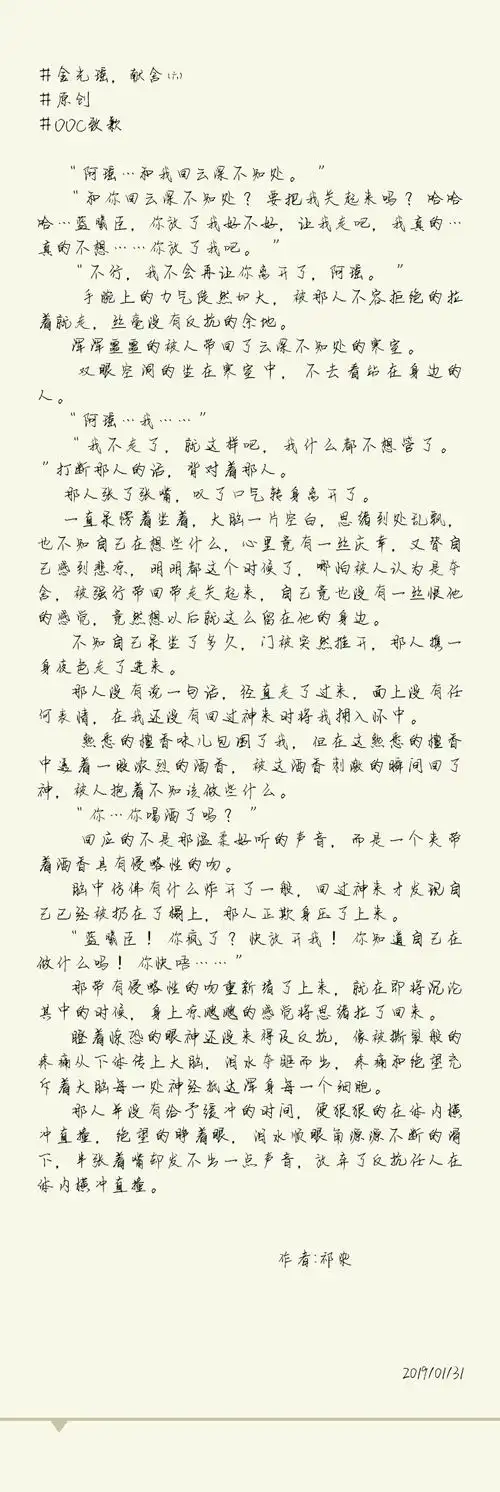 #金光瑶，献舍㈥
#原创
#OOC致歉
“阿瑶…和我回云深不知处。”
“和你回云深不知处？要把我关起来吗？哈哈
哈…蓝曦臣，你放了我好不好，让我走吧，我真的…
真的不想……你放了我吧。”
“不行，我不会再让你离开了，阿瑶。”
手腕上的力气陡然加大，被那人不容拒绝的拉
着就走，丝毫没有反抗的余地。
浑浑噩噩的被人带回了云深不知处的寒室。
双眼空洞的坐在寒室中，不去看站在身边的
人。
“阿瑶…我……”
“我不走了，就这样吧，我什么都不想管了。
”打断那人的话，背对着那人。
那人张了张嘴，叹了口气转身离开了。
一直呆愣着坐着，大脑一片空白，思绪到处乱飘，
也不知自己在想些什么，心里竟有一丝庆幸，又替自
己感到悲凉，明明都这个时候了，哪怕被人认为是夺
舍，被强行带回带走关起来，自己竟也没有一丝恨他
的感觉，竟然想以后就这么留在他的身边。
不知自己呆坐了多久，门被突然推开，那人携一
身夜色走了进来。
那人没有说一句话，径直走了过来，面上没有任
何表情，在我还没有回过神来时将我拥入怀中。
熟悉的檀香味儿包围了我，但在这熟悉的檀香
中透着一股浓烈的酒香，被这酒香刺激的瞬间回了
神，被人抱着不知该做些什么。
“你…你喝酒了吗？”
回应的不是那温柔好听的声音，而是一个夹带
着酒香具有侵略性的吻。
脑中仿佛有什么炸开了一般，回过神来才发现自
己已经被扔在了榻上，那人正欺身压了上来。
“蓝曦臣！你疯了？快放开我！你知道自己在
做什么吗！你快唔……”
那带有侵略性的吻重新堵了上来，就在即将沉沦
其中的时候，身上凉飕飕的感觉将思绪拉了回来。
瞪着惊恐的眼神还没来得及反抗，像被撕裂般的
疼痛从下体传上大脑，泪水夺眶而出，疼痛和绝望充
斥着大脑每一处神经抵达浑身每一个细胞。
那人并没有给予缓冲的时间，便狠狠的在体内横
冲直撞，绝望的睁着眼，泪水顺眼角源源不断的滑
下，半张着嘴却发不出一点声音，放弃了反抗任人在
体内横冲直撞。
作者:祁染
2019/01/31